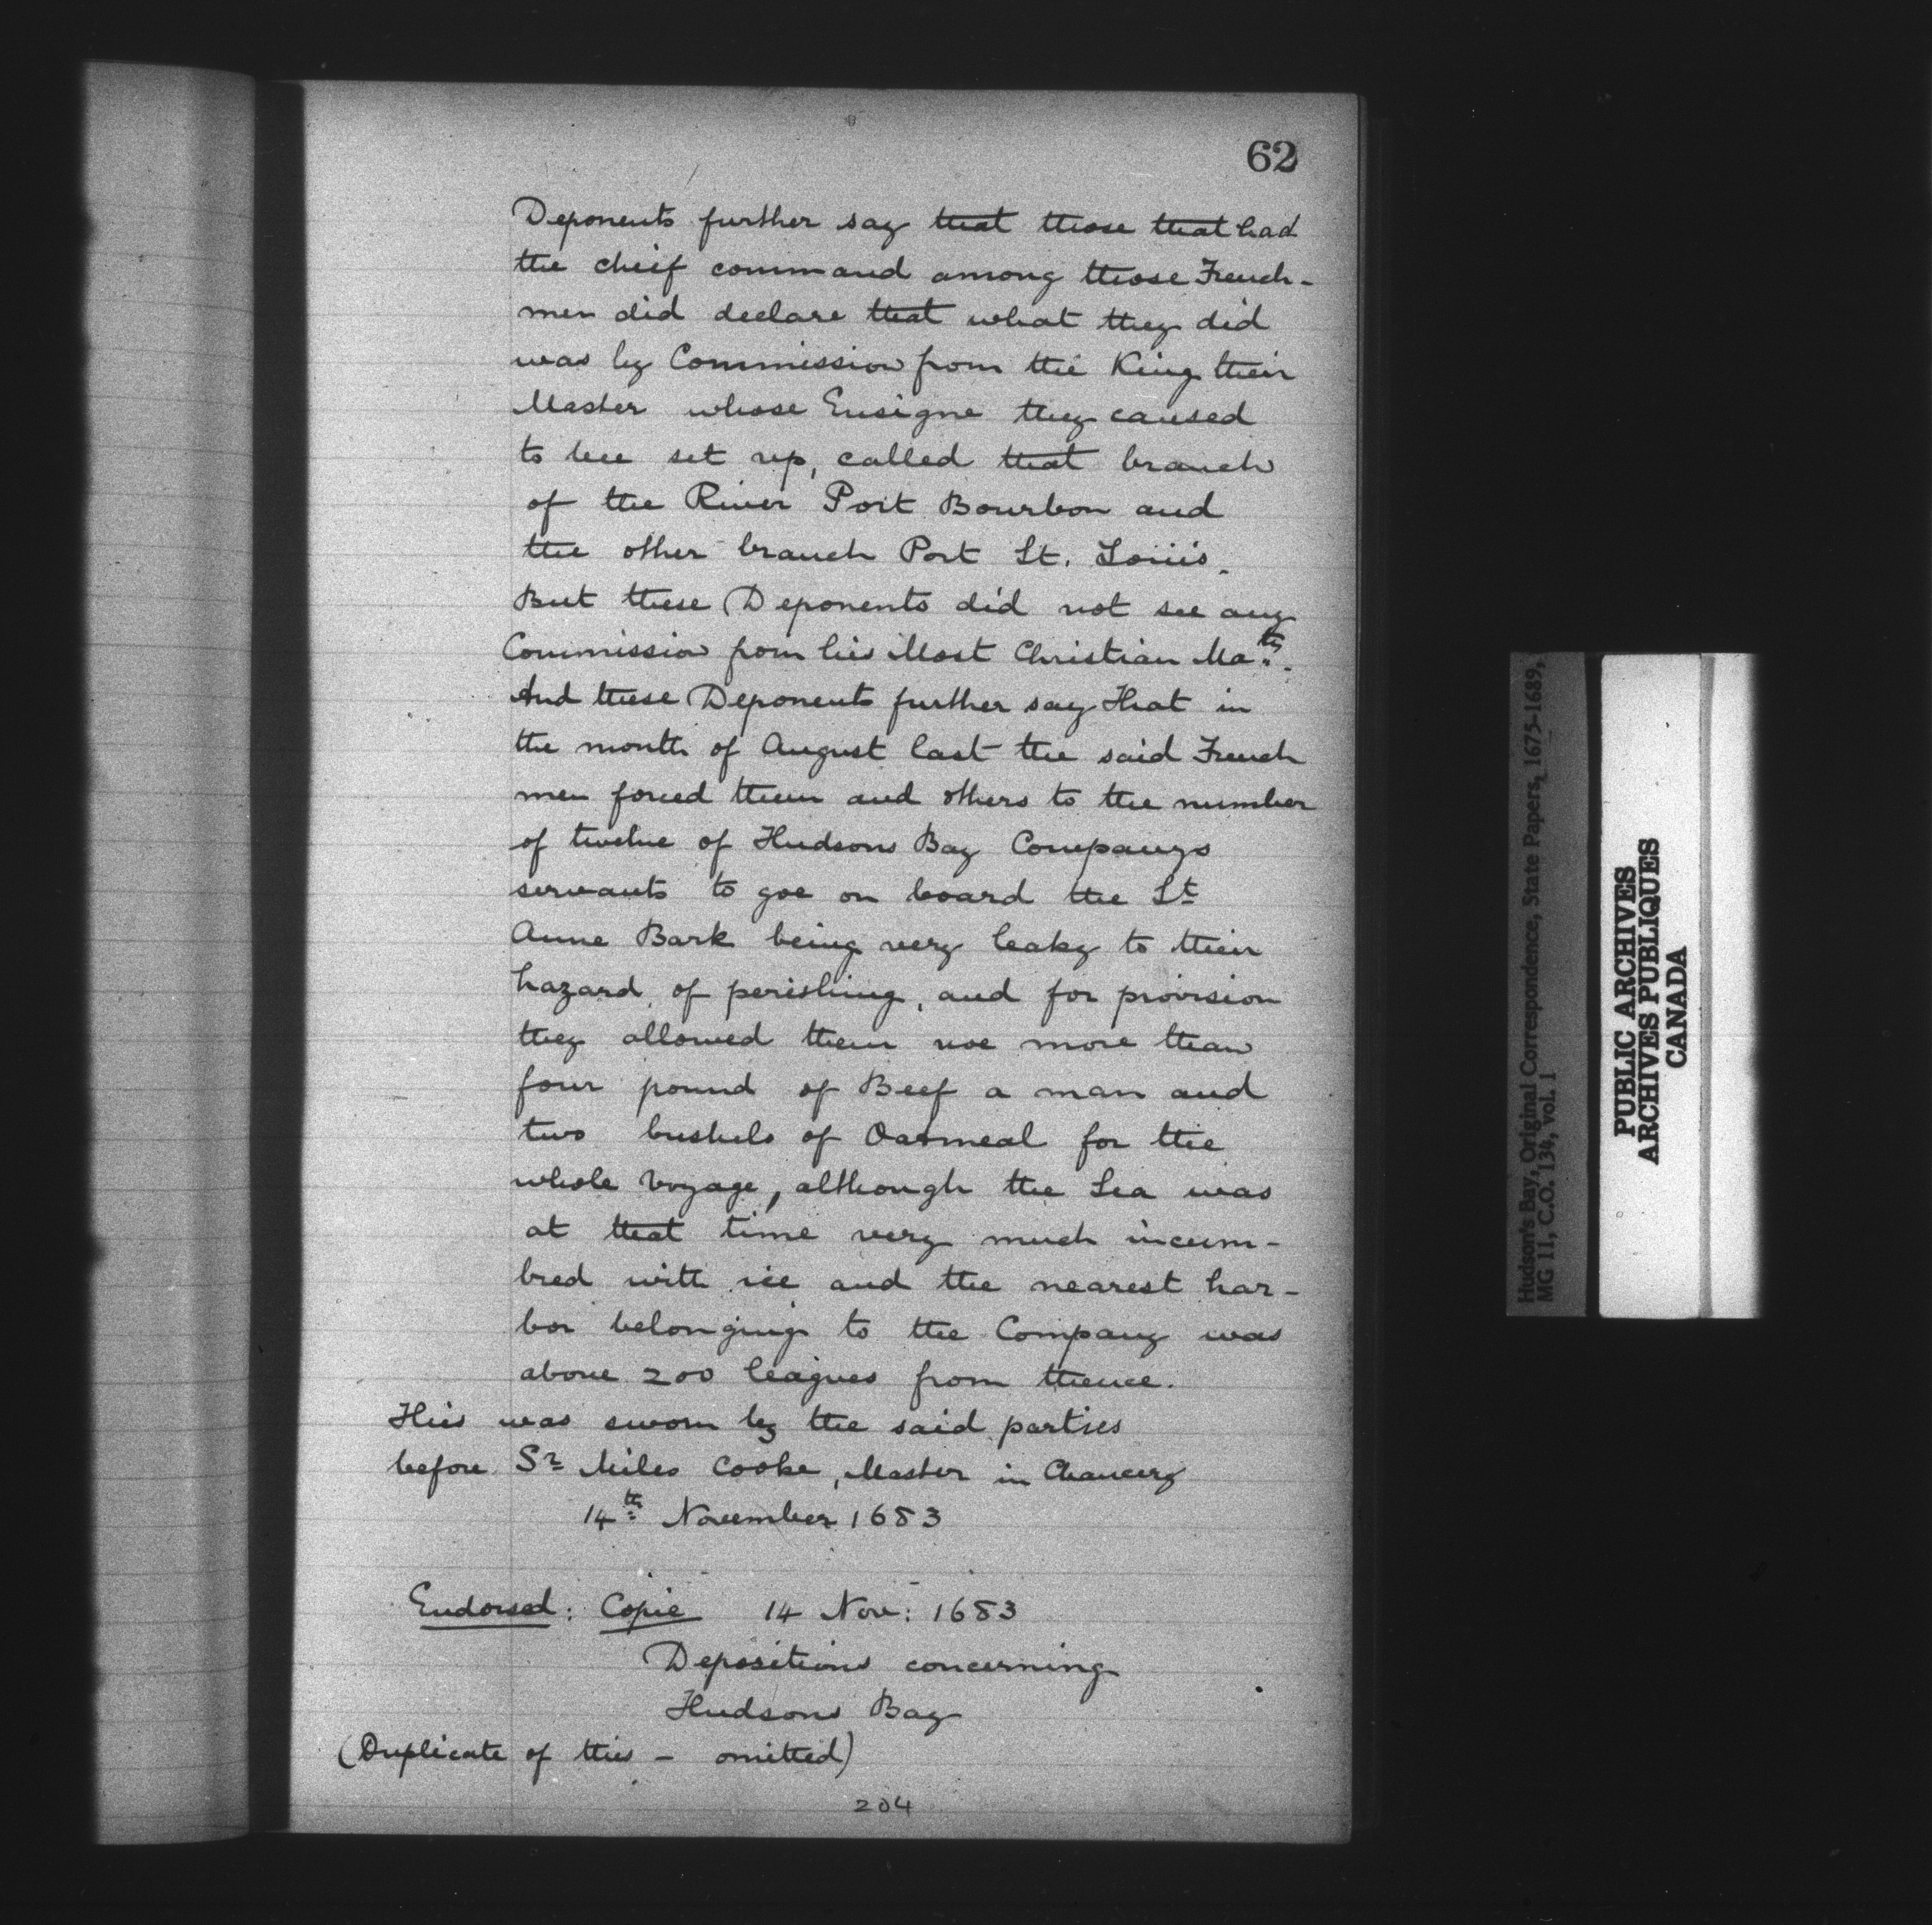 62
Deponents further say that those that had
the cheif command among those French-
men did declare that what they did
was by Commission from the King their
Master whose Ensigne they caused
to bee set up, called that branch
of the River Port Bourbon and
the other branch Port St. Loüis.
But these Deponents did not see any
Commission from his Most Christian Ma:ty.
And these Deponents further say That in
the month of August last the said French
men forced them and others to the number
of twelve of Hudsons Bay Companys
servants to goe on board the St
Anne Bark being very leaky to their
hazard of perishing, and for provision
they allowed them noe more than
four pound of Beef a man and
two bushels of Oatmeal for the
whole voyage, although the Sea was
at that time very much incum-
bred with ice and the nearest har-
bor belonging to the Company was
above 200 leagues from thence.
This was sworn by the said parties
before Sr Miles Cooke, Master in Chancery
14th November 1683
Endorsed: Copie 14 Nov: 1683
Depositions concerning
Hudsons Bay
(Duplicate of this - omitted)
204
Hudson's Bay, Original Correspondence, State Papers, 1675-1689,
MG 11, C.O. 134, vol. 1
PUBLIC ARCHIVES
ARCHIVES PUBLIQUES
CANADA